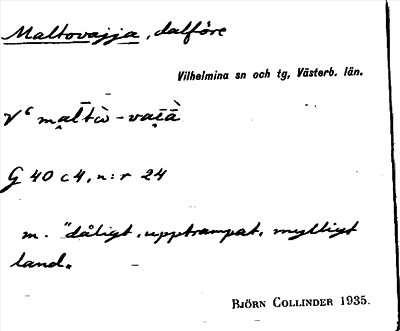 Maltovajja, dalföre
Vilhelmina sn och tg, Västerb. län.
G 40 c 4, n:r 24
m. "dåligt, upptrampat, mylligt
land„
BJÖRN COLLINDER 1935.